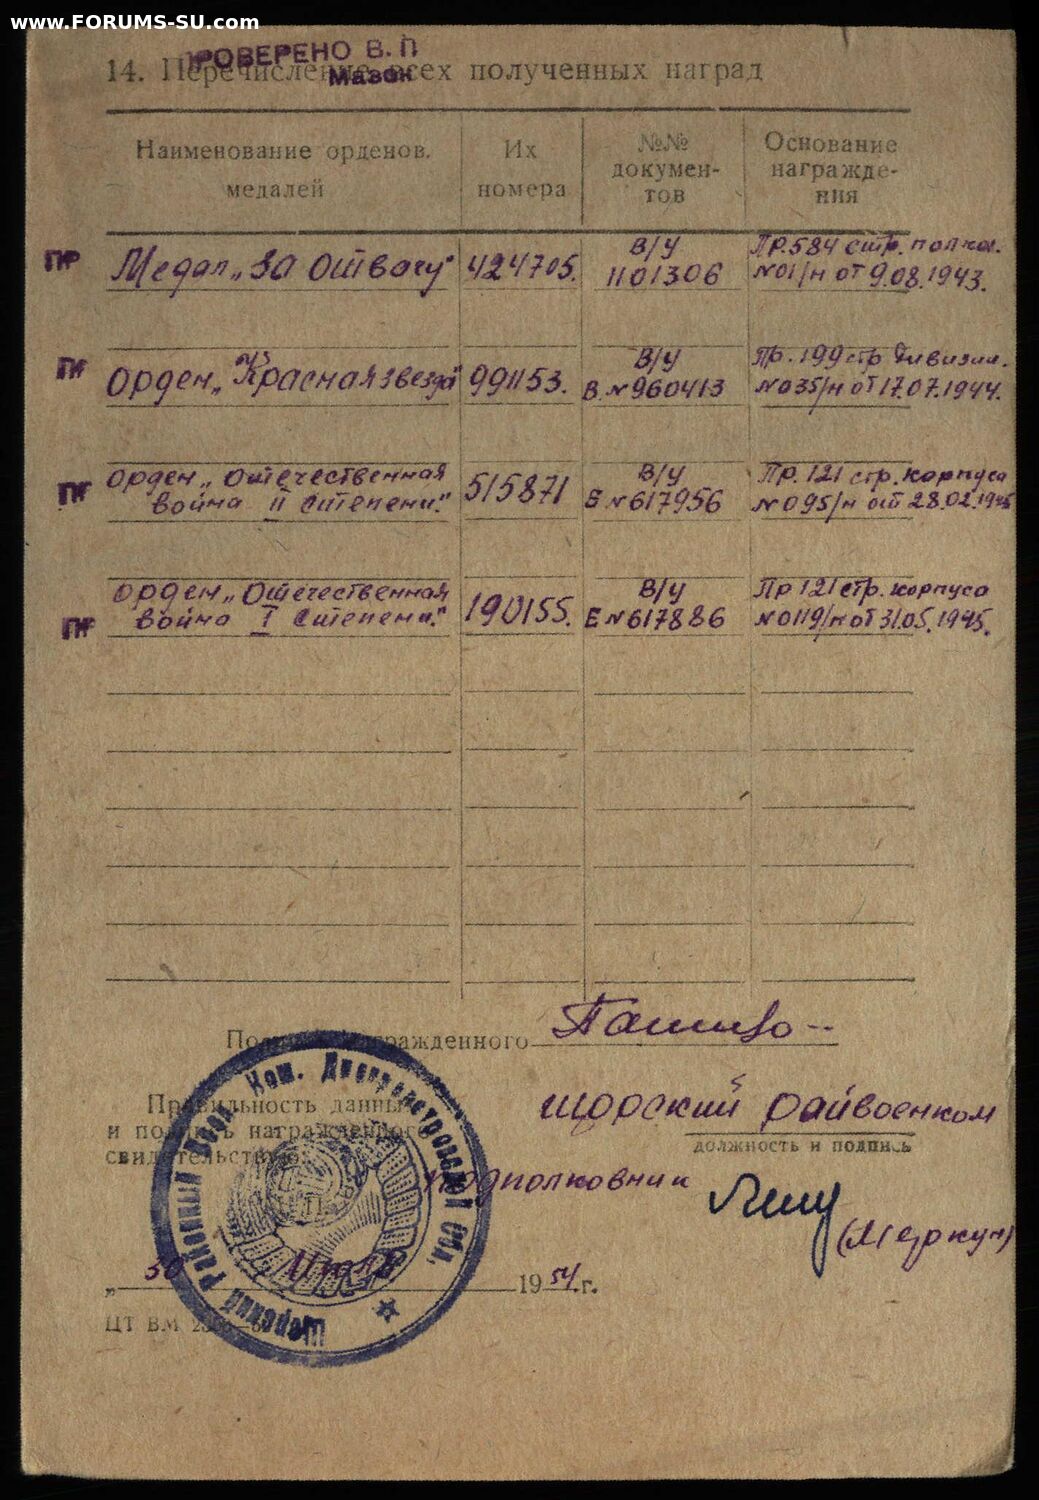 www.FORUMS-SU.com
ПРОВЕРЕНО В. П
Мазок
14. Перечисление всех полученных наград
Наименование орденов, медалей
Их номера
№№ докумен-тов
Основание награжде-ния
ПР
Медал „За отвагу"
424705.
В/У
1101306
Пр. 584 стр. полка.
№01/н от 9.08.1943.
ПР
Орден „Красная звезда"
991153.
В/У
В. №960413
Пр. 199 стр дивизии.
№035/н от 17.07.1944.
ПР
орден „Отечественная
война II степени."
515871
В/У
Е №617956
Пр. 121 стр. корпуса
№095/н от 28.02.1945
ПР
орден „Отечественная
война I степени."
190155.
В/У
Е №617886
Пр 121 стр. корпуса
№0119/н от 31.05.1945.
Подпись награжденного
Правильность данных
и подпись награжденного
свидетельствую:
Щорский райвоенком
должность и подпись
подполковник
(Меркун)
Щорский Районный Воен. Ком. Днепропетровской обл.
„30 Июля 1954 г.
ЦТ ВМ